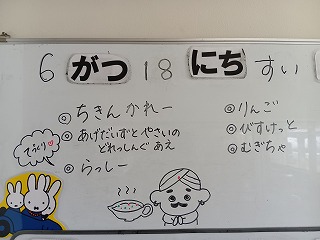 6 がつ 18 にち すい
◎ ちきんかれー
◎ あげだいずとやさいの
どれっしんぐあえ
◎ らっしー
てづくり♡
◎ りんご
◎ びすけっと
◎ むぎちゃ